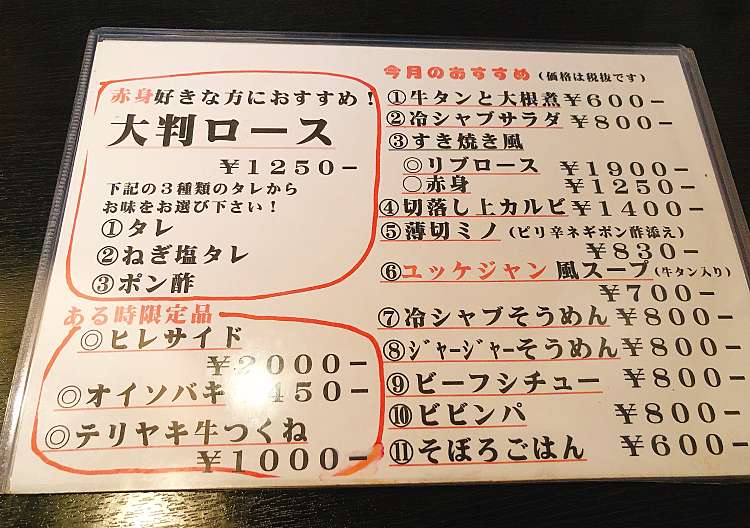 赤身好きな方におすすめ！
大判ロース
￥1250−
下記の3種類のタレから
お味をお選び下さい！
①タレ
②ねぎ塩タレ
③ポン酢
ある時限定品
◎ヒレサイド
￥2000−
◎オイソバキ 450−
◎テリヤキ牛つくね
￥1000−
今月のおすすめ（価格は税抜です）
①牛タンと大根煮￥600−
②冷シャブサラダ ￥800−
③すき焼き風
◎リブロース ￥1900−
○赤身 ￥1250−
④切落し上カルビ￥1400−
⑤薄切ミノ（ピリ辛ネギポン酢添え）
￥830−
⑥ユッケジャン風スープ(牛タン入り)
￥700−
⑦冷シャブそうめん ￥800−
⑧ｼﾞｬｰｼﾞｬｰそうめん￥800−
⑨ビーフシチュー ￥800−
⑩ビビンパ ￥800−
⑪そぼろごはん ￥600−